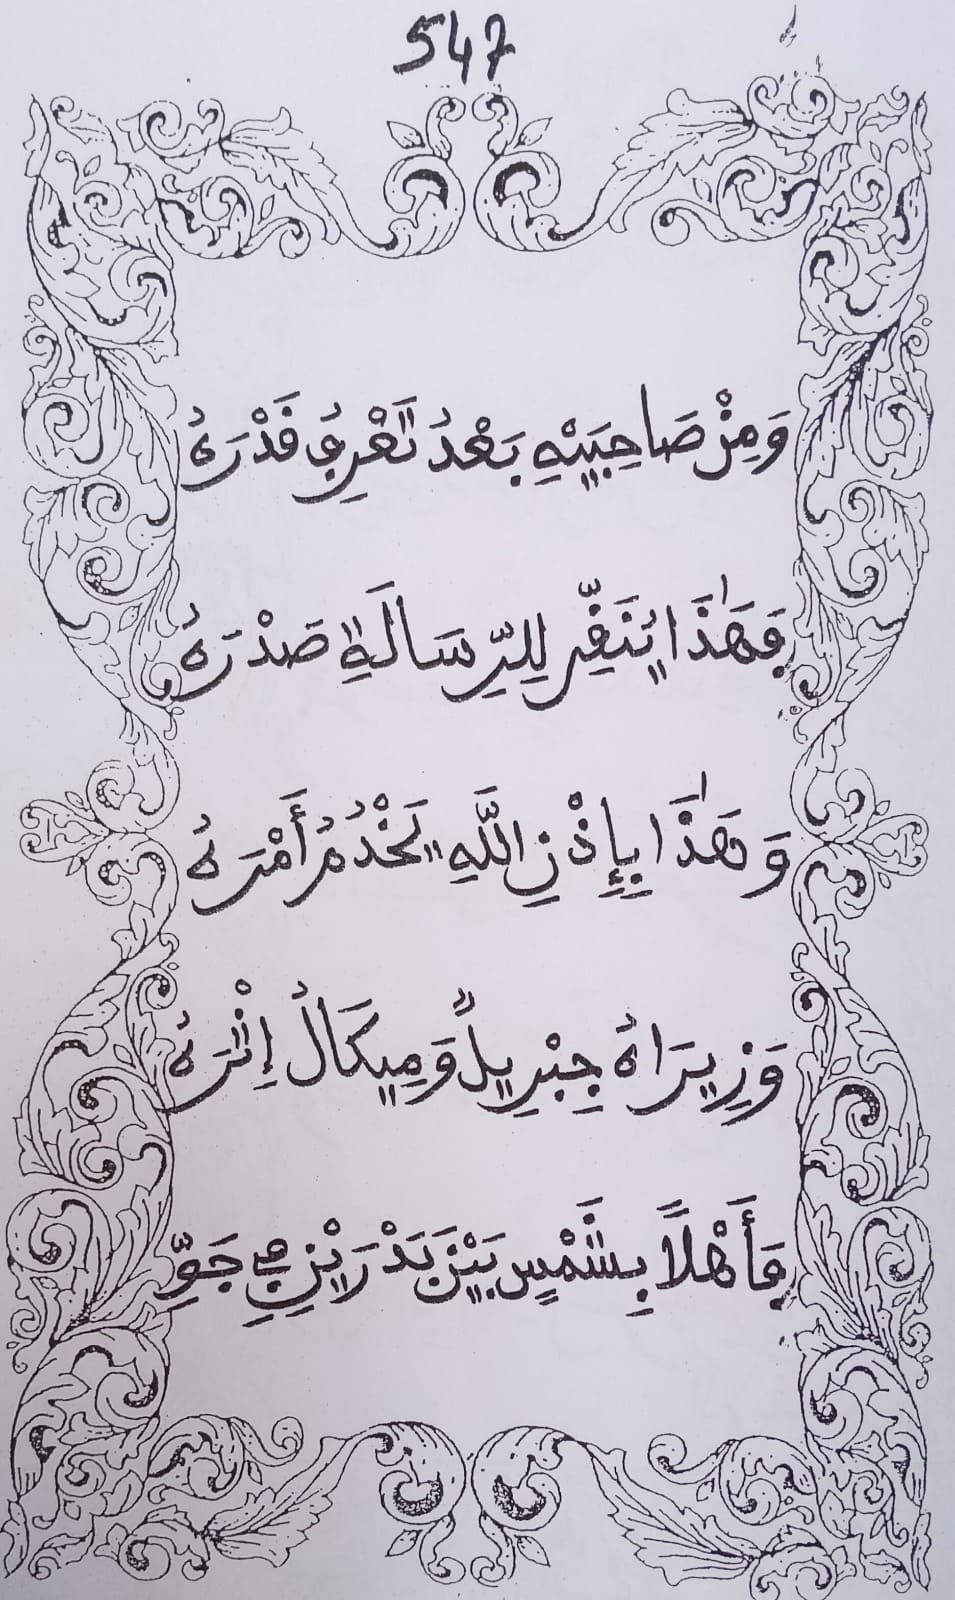 547
وَمِنْ صَاحِبَيْهِ بَعْدُ تَعْرِفُ قَدْرَهُ
فَهَٰذَا يُنَفِّرُ لِلرِّسَالَةِ صَدْرَهُ
وَهَٰذَا بِإِذْنِ اللَّهِ يَخْدُمُ أَمْرَهُ
وَزِيرَاهُ جِبْرِيلٌ وَمِيكَالُ اِثْرَهُ
فَأَهْلًا بِشَمْسٍ بَيْنَ بَدْرَيْنِ فِي جَوِّ